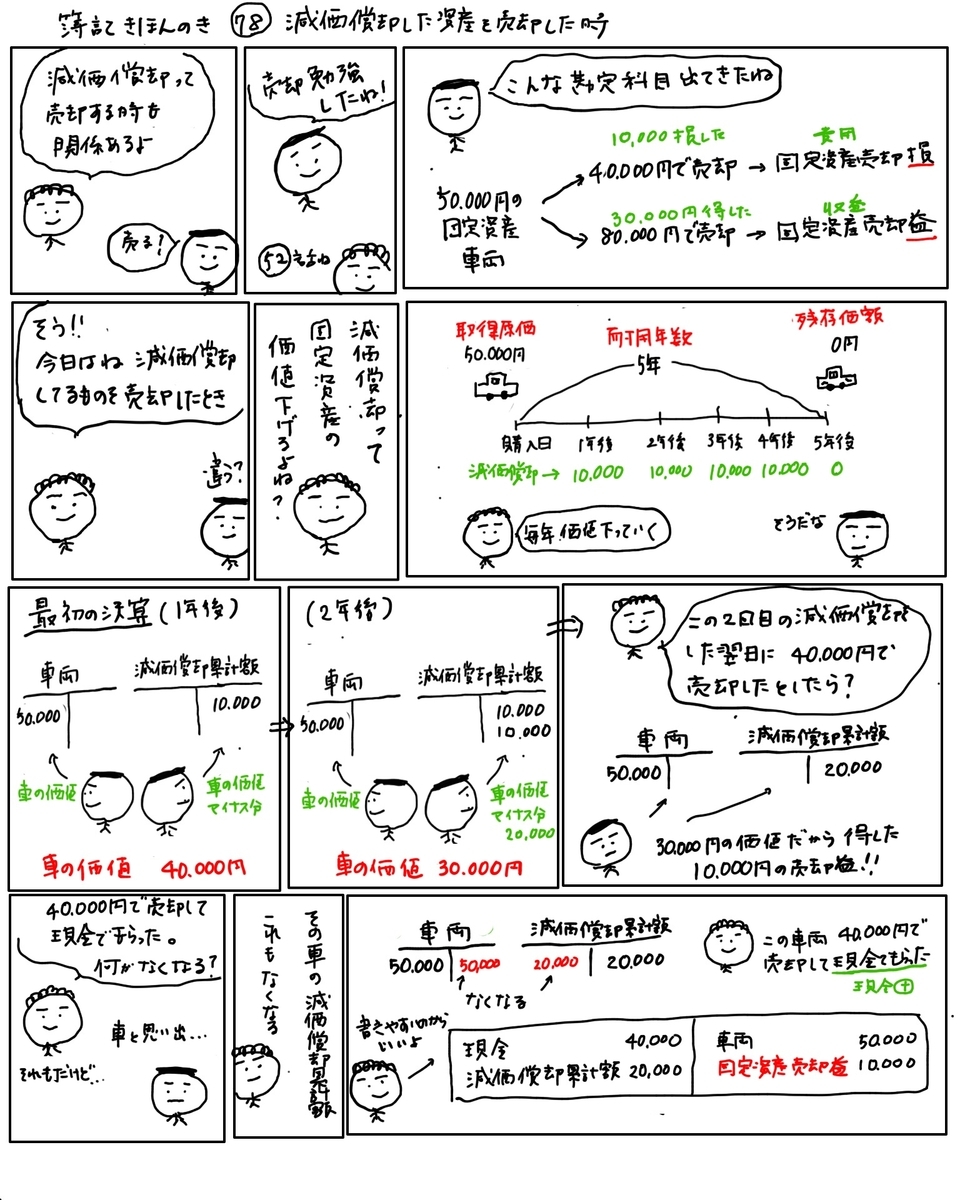 簿記きほんのき 78 減価償却した資産を売却した時
減価償却って
売却する時も
関係あるよ
売る!
売却勉強
したね!
52もみね
こんな勘定科目出てきたね
50.000円の
固定資産
車両
10,000損した
40.000円で売却 → 固定資産売却損
費用
30.000円得した
80.000円で売却 → 固定資産売却益
収益
そう!!
今日はね 減価償却
してるものを売却したとき
違う?
減価償却って
固定資産の
価値下げるよね?
取得原価
50.000円
耐用年数
5年
残存価額
0円
購入日 1年後 2年後 3年後 4年後 5年後
減価償却→ 10.000 10.000 10.000 10.000 0
毎年価値下っていく
そうだな
最初の決算(1年後)
車両 減価償却累計額
50.000 10.000
車の価値
車の価値
マイナス分
車の価値 40.000円
(2年後)
車両 減価償却累計額
50.000 10.000
10.000
車の価値
車の価値
マイナス分
20,000
車の価値 30.000円
この2回目の減価償却を
した翌日に 40.000円で
売却したとしたら?
車両 減価償却累計額
50.000 20.000
30.000円の価値だから得した
10.000円の売却益!!
40.000円で売却して
現金でもらった。
何がなくなる?
車と思い出...
それもだけど...
その車の減価償却累計額
これもなくなる
車両 減価償却累計額
50.000 50,000 20,000 20,000
なくなる
この車両 40.000円で
売却して現金でもらった
現金+
書きやすいのから
でいいよ
現金 40,000 車両 50.000
減価償却累計額 20,000 固定資産売却益 10.000